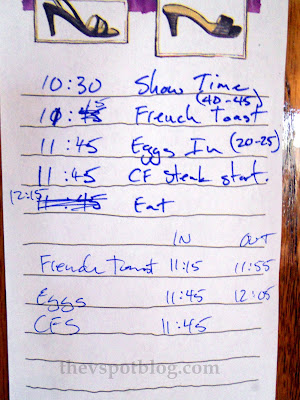 10:30 Show Time
(40-45)
15
10:45 French toast
11:45 Eggs In (20-25)
11:45 CF Steak start.
12:15
11:45 Eat
IN OUT
French Toast 11:15 11:55
Eggs 11:45 12:05
CFS 11:45
thevspotblog.com